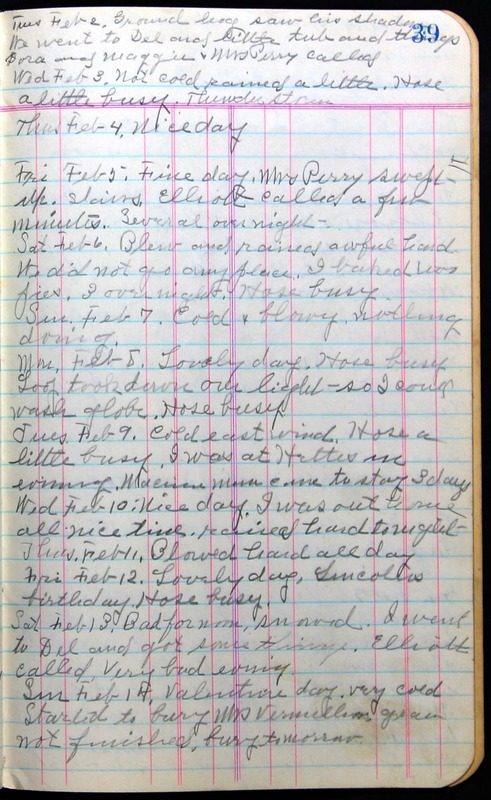 39
Tues Feb 2. Ground hog saw his shadow
We went to Del and little tub and things
Dora and Maggie & Mrs Perry called
Wed Feb 3, Not cold rained a little. Hose
a little busy. Thunderstorm
Thus Feb 4, Nice day
Fri Feb 5. Fine day. Mrs Perry swept
up. stairs, Elliott called a few
minutes. Several over night.
Sat Feb 6. Blew and rained awful hard
We did not go any place. I baked two
pies. 1 over night. Hose busy.
Sun. Feb 7. Cold & blowy. nothing
doing.
Mon, Feb 8. Lovely day. Hose busy
took down our light so I could
wash globe. Hose busy
Tues. Feb 9. Cold east wind. Hose a
little busy. I was at Hetties in
evening. man came to stay 3 days
Wed Feb 10. Nice day. I was out home
all nice time. rained hard to night
Thus. Feb 11, Blowed hard all day
Fri Feb 12. Lovely day, Lincolns
birthday. Hose busy.
Sat Feb 13. Bad fornoon, snowed. I went
to Del and got some things. Elliott
called Very bad evening
Sun Feb 14, Valentine day. very cold
Started to bury Mrs Vermillion grave
not finished, bury tomorrow